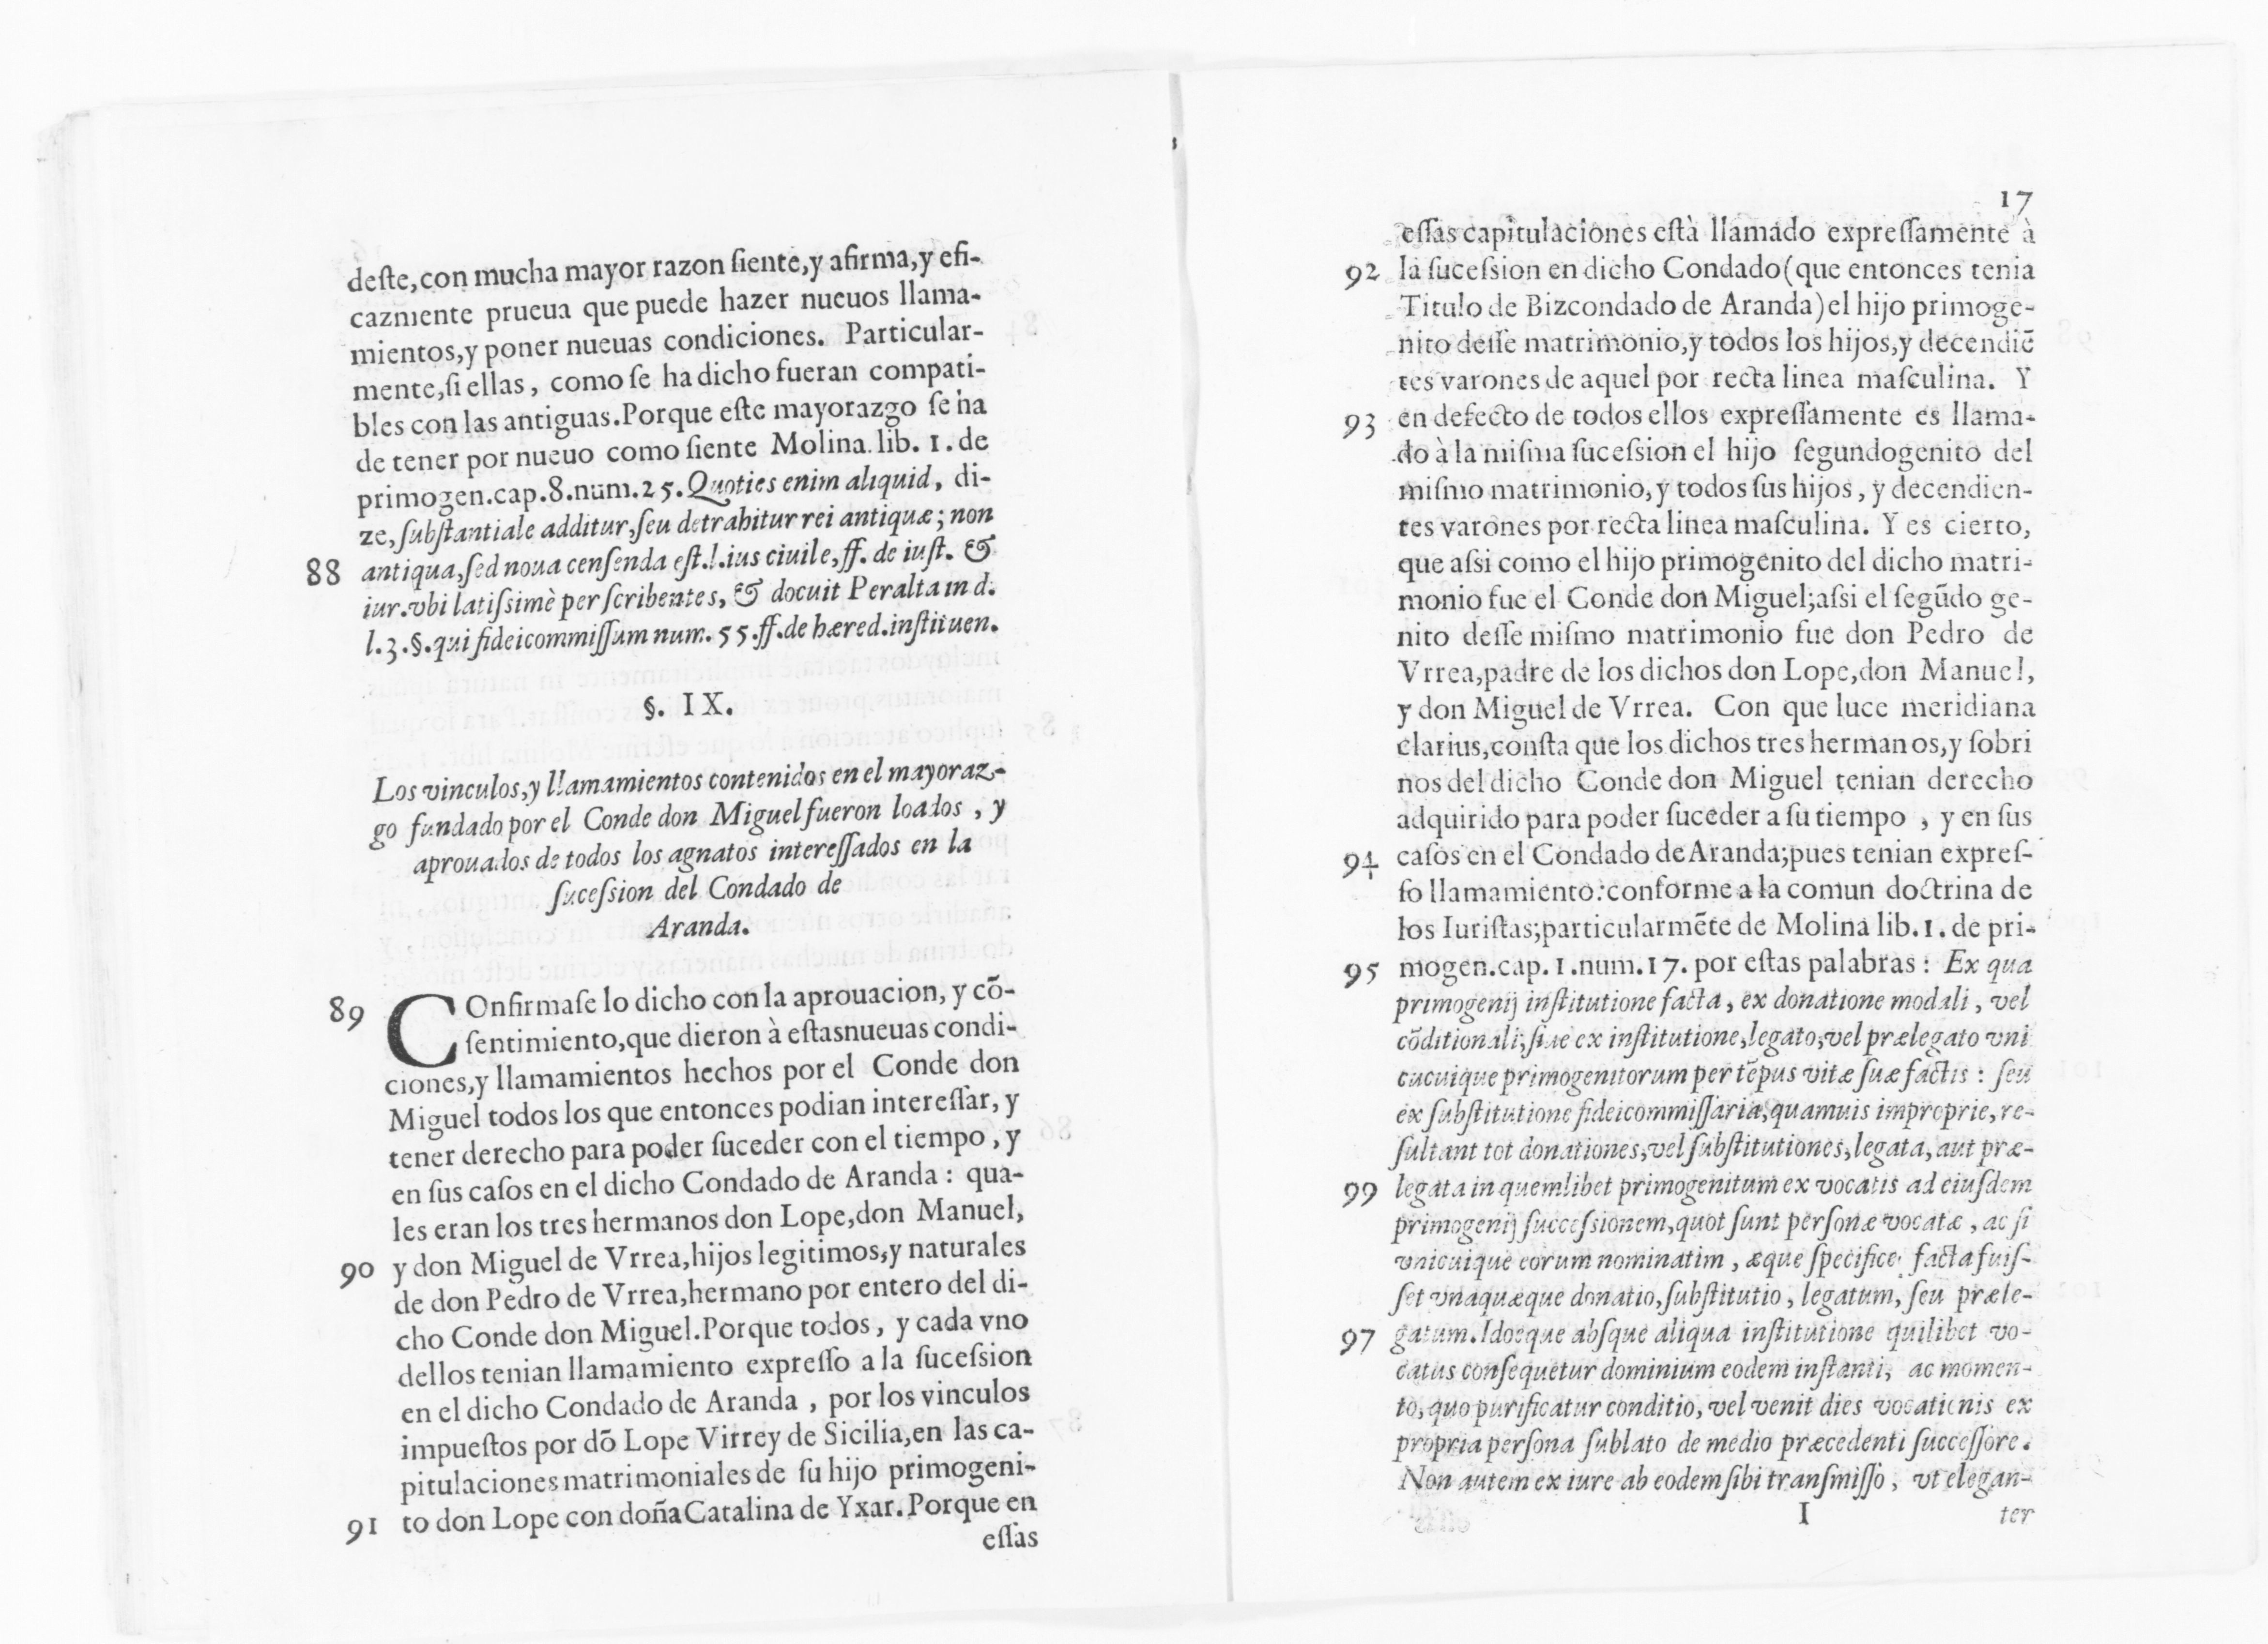 deste,con mucha mayor razon siente,y afirma,y efi-
cazmente prueua que puede hazer nueuos llama-
mientos,y poner nueuas condiciones. Particular-
mente,si ellas, como se ha dicho fueran compati-
bles con las antiguas.Porque este mayorazgo se ha
de tener por nueuo como siente Molina.lib. 1. de
primogen.cap.8.num.25.Quoties enim aliquid, di-
ze,substantiale additur,seu detrahitur rei antiquæ; non
88 antiqua,sed noua censenda est.l.ius ciuile,ff. de iust. &
iur.vbi latissimè per scribentes, & docuit Peralta in d.
l.3.§.qui fideicommissum num. 55.ff.de hæred.instituen.
§. IX.
Los vinculos,y llamamientos contenidos en el mayoraz-
go fundado por el Conde don Miguel fueron loados , y
aprouados de todos los agnatos interessados en la
sucession del Condado de
Aranda.
89 COnfirmase lo dicho con la aprouacion, y cõ-
sentimiento,que dieron à estasnueuas condi-
ciones,y llamamientos hechos por el Conde don
Miguel todos los que entonces podian interessar, y
tener derecho para poder suceder con el tiempo , y
en sus casos en el dicho Condado de Aranda : qua-
les eran los tres hermanos don Lope,don Manuel,
90 y don Miguel de Vrrea,hijos legitimos,y naturales
de don Pedro de Vrrea,hermano por entero del di-
cho Conde don Miguel.Porque todos, y cada vno
dellos tenian llamamiento expresso a la sucession
en el dicho Condado de Aranda , por los vinculos
impuestos por dõ Lope Virrey de Sicilia,en las ca-
pitulaciones matrimoniales de su hijo primogeni-
91 to don Lope con doña Catalina de Yxar.Porque en
essas
17
essas capitulaciones està llamado expressamente à
92 la sucession en dicho Condado(que entonces tenia
Titulo de Bizcondado de Aranda)el hijo primoge-
nito desse matrimonio,y todos los hijos,y decendiẽ
tes varones de aquel por recta linea masculina. Y
93 en defecto de todos ellos expressamente es llama-
do à la misma sucession el hijo segundogenito del
mismo matrimonio,y todos sus hijos , y decendien-
tes varones por recta linea masculina. Y es cierto,
que assi como el hijo primogenito del dicho matri-
monio fue el Conde don Miguel;assi el segũdo ge-
nito desse mismo matrimonio fue don Pedro de
Vrrea,padre de los dichos don Lope,don Manuel,
y don Miguel de Vrrea. Con que luce meridiana
clarius,consta que los dichos tres hermanos,y sobri
nos del dicho Conde don Miguel tenian derecho
adquirido para poder suceder a su tiempo , y en sus
94 casos en el Condado de Aranda;pues tenian expres-
so llamamiento:conforme a la comun doctrina de
los Iuristas;particularmẽte de Molina lib.1. de pri-
95 mogen.cap.1.num.17. por estas palabras : Ex qua
primogenij institutione facta, ex donatione modali, vel
cõditionali;siue ex institutione,legato,vel prælegato vni
cucuique primogenitorum per tẽpus vitæ suæ factis : seu
ex substitutione fideicommissaria,quamuis improprie, re-
sultant tot donationes,vel substitutiones,legata, aut præ-
99 legata in quemlibet primogenitum ex vocatis ad eiusdem
primogenij successionem,quot sunt personæ vocatæ , ac si
vnicuique eorum nominatim , æque specifice facta fuis-
set vnaquæque donatio,substitutio, legatum, seu præle-
97 gatum.Idosque absque aliqua institutione quilibet vo-
catus consequetur dominium eodem instanti, ac momen-
to, quo purificatur conditio, vel venit dies vocationis ex
propria persona sublato de medio præcedenti successore.
Non autem ex iure ab eodem sibi transmisso, vt elegan-
I ter